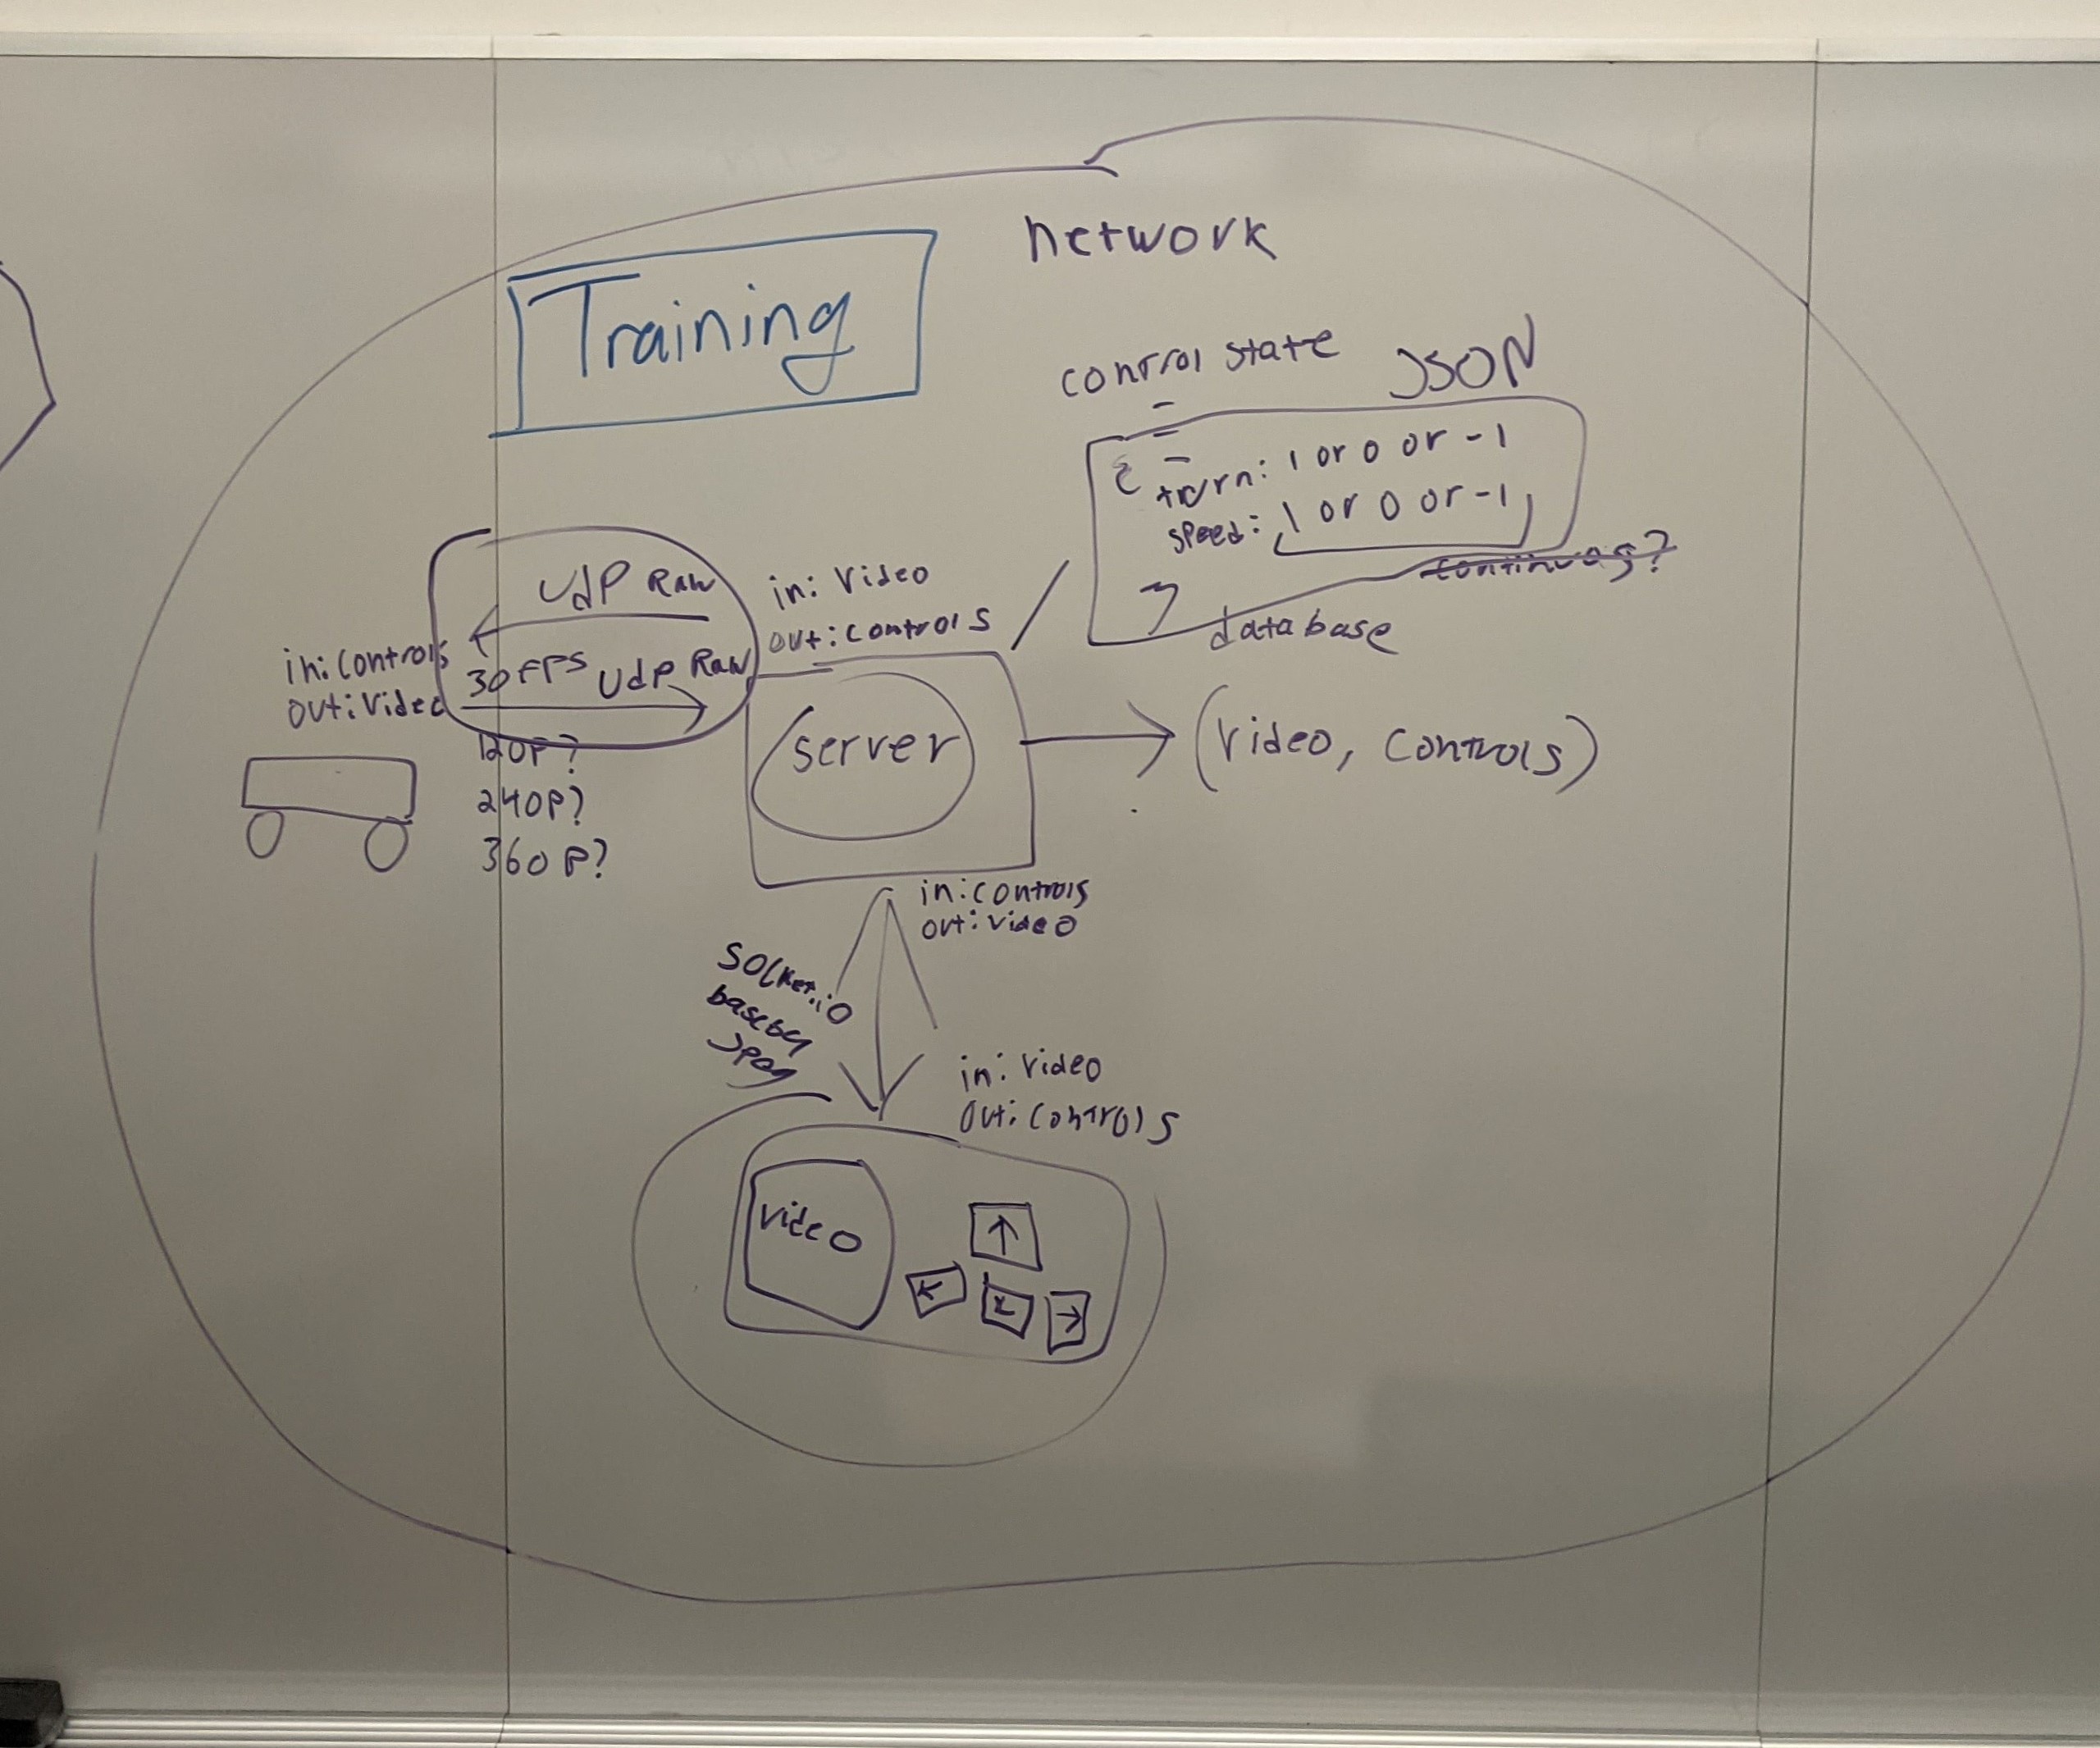 network
Training
control state JSON
{
turn: 1 or 0 or -1
speed: 1 or 0 or -1
}
database
UdP Raw
30 FPS UdP Raw
in: controls
out: video
120P?
240P?
360P?
in: video
out: controls
server
(video, controls)
in: controls
out: video
Socket.io
base64
Jpeg
in: video
out: controls
video
↑
←
→